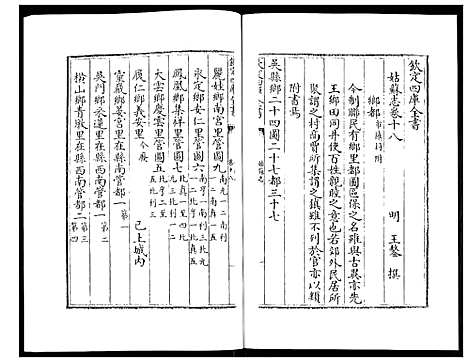 欽定四庫全書
姑蘇志卷十八
明 王鏊 撰
鄉都 市鎮村附
今制縣民有鄉里都圖區保之名雖與古異亦先
王鄉田同井使百姓親睦之意也若郊外民居所
聚謂之村商賈所集謂之鎮雖不列於官亦以類
附書焉
吳縣鄉二十四圖二十七都三十七
欽定四庫全書
姑蘇志
卷十八
麗娃鄉南宮里管圖九
永定鄉安仁里管圖六
鳳凰鄉集祥里管圖七
大雲鄉慶雲里管圖五
履仁鄉義安里今廢
已上城內
靈巖鄉姜宮里在縣西南管都一 第一
吳門鄉永進里在縣西南管都一 第二
橫山鄉青墩里在縣西南管都二 第三 第四